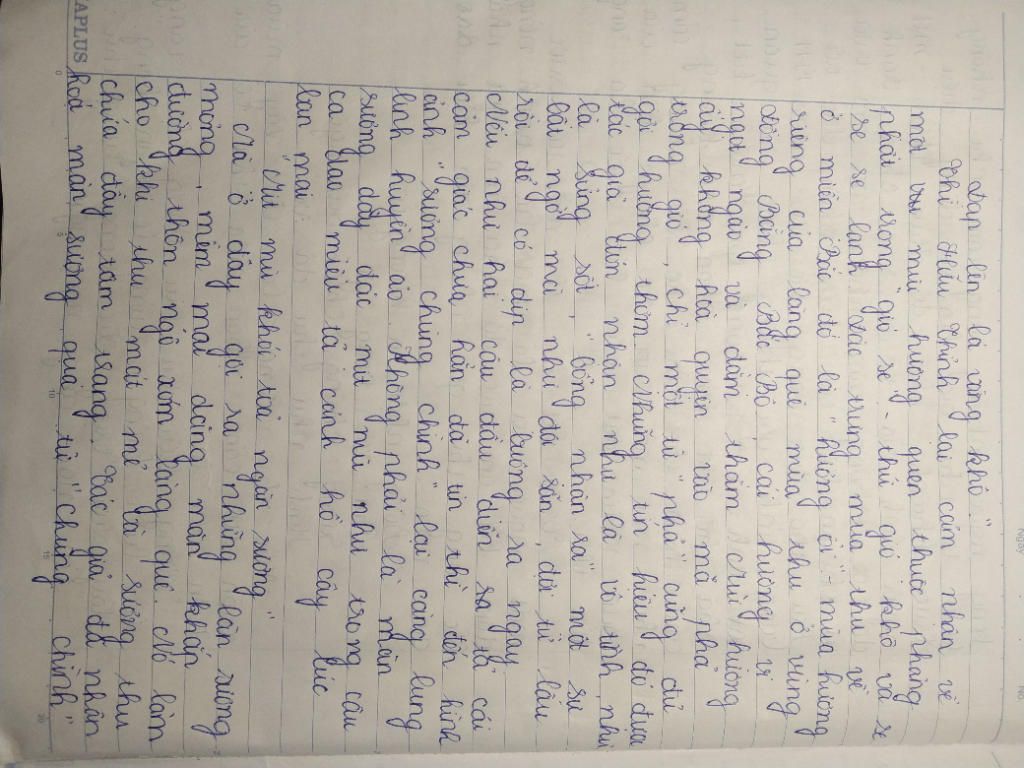 Đạp lên lá vàng khô"
Thì Hữu Thỉnh lại cảm nhận về
một mùi hương quen thuộc phảng
phất trong "gió se - thứ gió khô và se
se se lạnh đặc trưng mùa thu về
ở miền Bắc đó là "hương ổi" - mùi hương
riêng của làng quê mùa thu ở vùng
đồng Bằng Bắc Bộ, cái hương vị
ngọt ngào và đằm thắm. Mùi hương
ấy không hòa quyện vào mà phả
trong gió, chỉ một từ "phả" cũng đủ
gợi hương thơm. Những tín hiệu đó đưa
tác giả đón nhận như là vô tình, như
là sửng sốt, "bỗng nhận ra" một sự
bất ngờ mà như đã sẵn, đợi từ lâu
rồi để có dịp là buông ra ngay
Nếu như hai câu đầu diễn ra từ cái
cảm giác chưa hẳn đã tin thì đến hình
ảnh "sương chùng chình" lại càng lung
linh huyền ảo. Không phải là màn
sương dày dặc mịt mù như trong câu
ca dao miêu tả cảnh hồ cây lúc
ban mai:
"Mịt mù khói tỏa ngàn sương"
Mà ở đây gợi ra những làn sương
mỏng, mềm mại dăng màn khắp
đường thôn ngõ xóm làng quê. Nó làm
cho khí thu mát mẻ và sương thu
chứa đầy tâm trạng. Tác giả đã nhân
hoá màn sương qua từ "chùng chình"
APLUS
0
5
10
15
20
Ngày
No